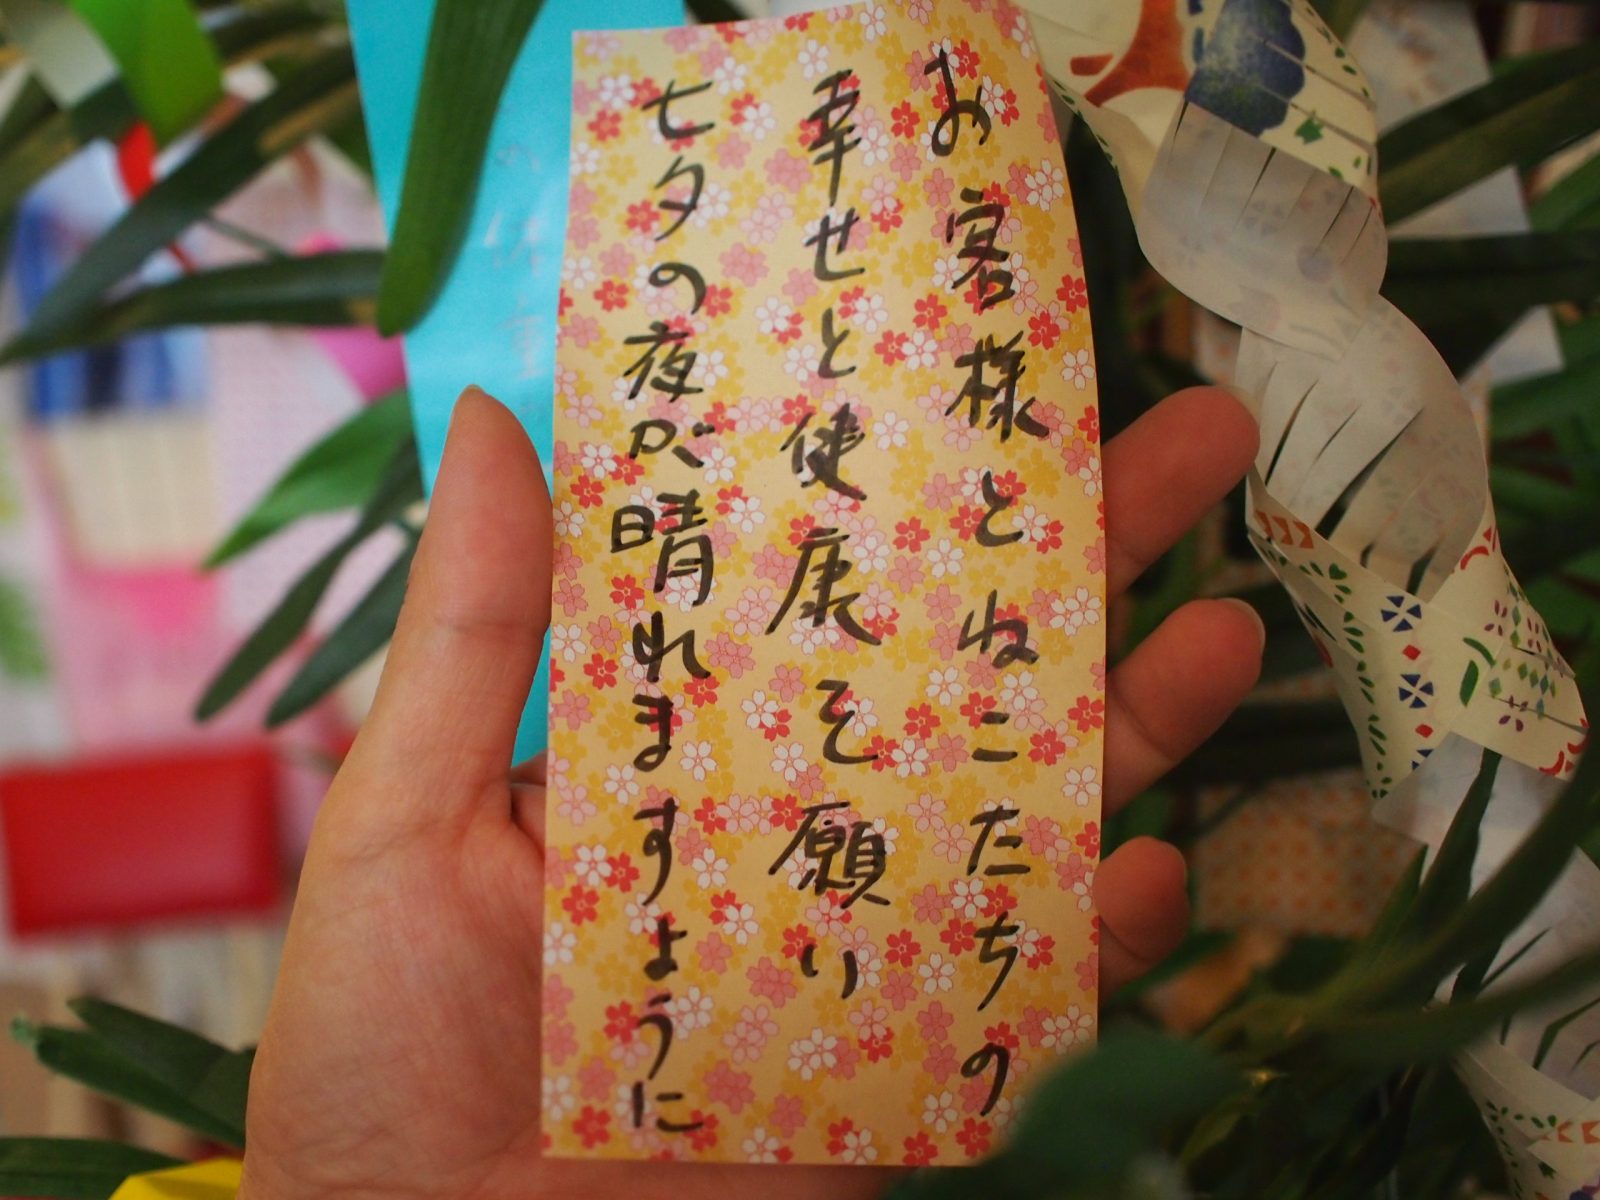 お客様とねこたちの
幸せと健康を願い
七夕の夜が晴れますように